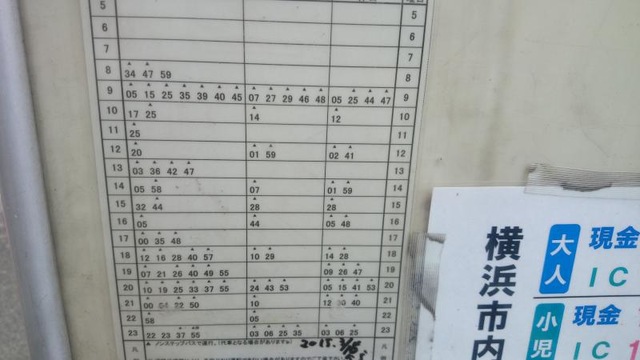 5 5
6 6
7 7
8 34 47 59 8
9 05 15 25 35 39 40 45 07 27 29 46 48 05 25 44 47 9
10 17 25 14 12 10
11 25 11
12 20 01 59 02 41 12
13 03 36 42 47 13
14 05 58 07 01 59 14
15 32 44 28 28 15
16 05 44 05 48 16
17 00 35 48 17
18 12 16 28 40 57 10 29 14 28 18
19 07 21 26 40 49 55 09 26 47 19
20 10 19 25 33 37 55 10 24 43 53 05 15 41 53 20
21 00 22 50 10 12 40 21
22 58 05 22
23 22 23 37 55 03 06 25 35 03 06 25 23
凡 ▲ ノンステップバスで運行。(代車となる場合があります) 凡
2015.
横浜市内
大人 現金
IC
小児 現金
IC